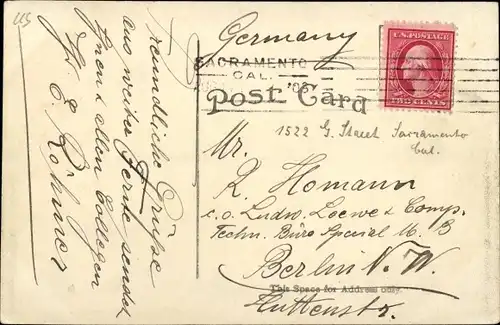 US
Freundliche Grüße
aus weiter Ferne sendet
Ihnen u. allen Collegen
Ihr E. Röhmer
Germany
U.S. POSTAGE
TWO CENTS
SACRAMENTO
CAL.
Post Card
1522 G. Street Sacramento
Cal.
Mr.
R. Homann
c. o. Ludw. Loewe & Comp.
Techn. Büro Spezial 16 B
Berlin N. W.
This Space for Address only.
Huttenstr.